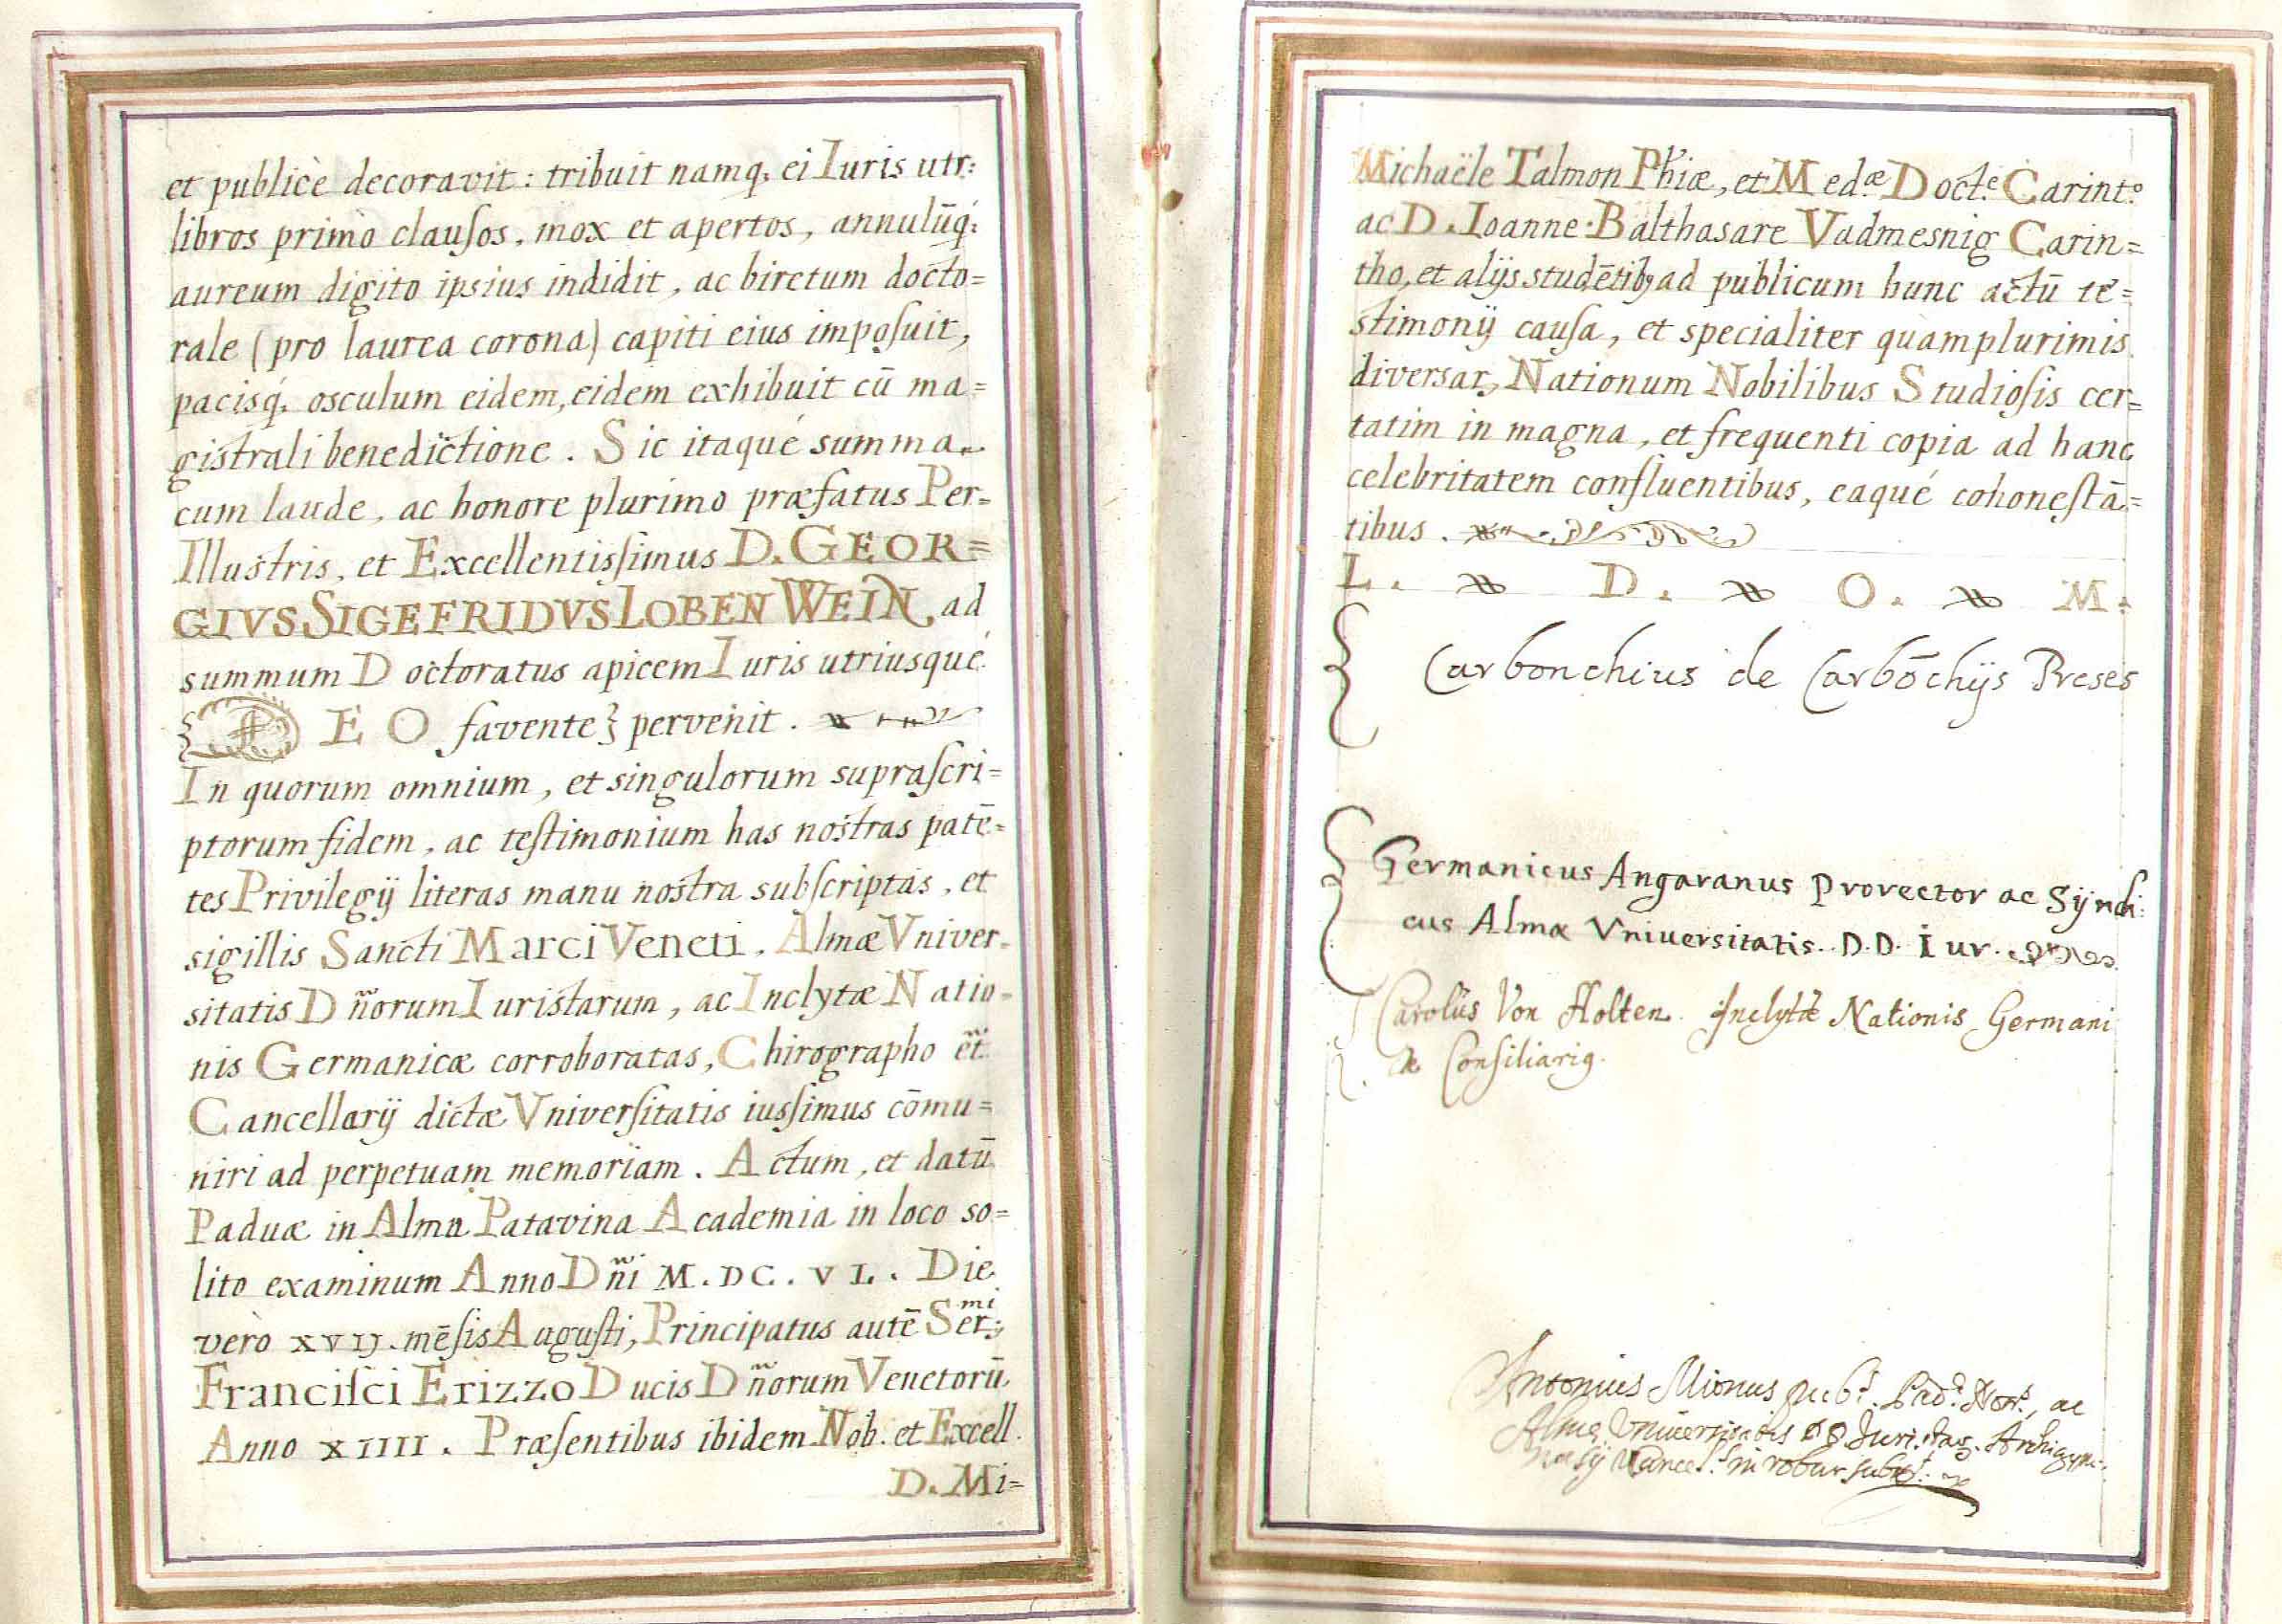 et publicè decoravit: tribuit namq; ei Iuris utr:
libros primò clausos, mox et apertos, annulūq;
aureum digito ipsius indidit, ac biretum docto=
rale (pro laurea corona) capiti eius imposuit,
pacisq; osculum eidem, eidem exhibuit cū ma=
gistrali benedictione. Sic itaque summa
cum laude, ac honore plurimo præfatus Per=
Illustris, et Excellentissimus D. GEOR=
GIVS SIGEFRIDVS LOBENWEIN, ad
summum Doctoratus apicem Iuris utriusque
DEO favente pervenit.
In quorum omnium, et singulorum suprascri=
ptorum fidem, ac testimonium has nostras patē=
tes Privilegij literas manu nostra subscriptas, et
sigillis Sancti Marci Veneti, Almæ Vniver=
sitatis Dñorum Iuristarum, ac Inclytæ Natio=
nis Germanicæ corroboratas, Chirographo et̃
Cancellarij dictæ Vniversitatis iussimus cōmu=
niri ad perpetuam memoriam. Actum, et datū
Paduæ in Alma Patavina Academia in loco so=
lito examinum Anno Dñi M.DC.VL. Die
vero XVIJ. mēsis Augusti, Principatus autē Ser:mi
Francisci Erizzo Ducis Dñorum Venetorū
Anno XIIII. Præsentibus ibidem Nob. et Excell.
D. Mi=
Michaële Talmon Phiæ, et Med:æ Doct:e Carint:o
ac D. Ioanne Balthasare Vadmesnig Carin=
tho, et alijs studētibꝫ ad publicum hunc actū te=
stimonij causa, et specialiter quamplurimis
diversarꝫ Nationum Nobilibus Studiosis cer=
tatim in magna, et frequenti copia ad hanc
celebritatem confluentibus, eaque cohonestā=
tibus.
L. D. O. M.
Carbonchius de Carbōchijs Preses
Germanicus Angaranus Prorector ac Syndi:
cus Almæ Vniuersitatis. D.D. Iur.
Carolus Von Holten. Inclytæ Nationis Germani
cæ Consiliariꝰ.
Antonius Mionus pub.s Pad.s Not.s, ac
Almę Vniuersitatis DD Iuristarꝫ. Archigym:
nasij Cancel.s in robur subst.